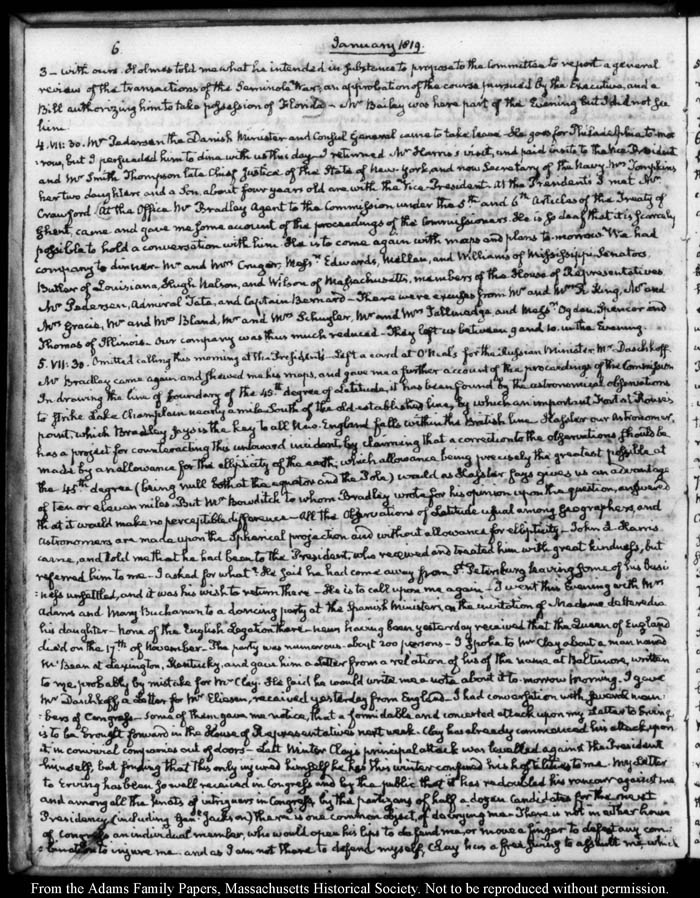 6. January 1819.
3 — with ours. Holmes told me what he intended in substance to propose to the Committee to report a general
review of the transactions of the Seminole War; an approbation of the course pursued by the Executive, and a
Bill authorizing him to take possession of Florida — Mr Bailey was here part of the Evening but I did not see
him.
4. VII: 30. Mr Pedersen the Danish Minister and Consul General came to take leave. He goes for Philadelphia to-mor
row, but I persuaded him to dine with us this day. I returned Mr Harris's visit, and paid visits to the Vice-President
and Mr Smith Thompson late Chief Justice of the State of New-York, and now Secretary of the Navy. Mrs Tompkins
her two daughters and a Son about four years old are with the Vice-President. At the President's I met Mr
Crawford. At the Office Mr Bradley Agent to the Commission under the 5th and 6th Articles of the Treaty of
Ghent, came and gave me some account of the proceedings of the Commissioners. He is so deaf that it is scarcely
possible to hold a conversation with him. He is to come again with maps and plans to-morrow. We had
company to dinner. Mr and Mrs Cruger, Messrs Edwards, Mellen, and Williams of Mississippi. Senators.
Butler of Louisiana, Hugh Nelson, and Wilson of Massachusetts, members of the House of Representatives.
Mr Pedersen, Admiral Tate, and Captain Bernard — There were excuses from Mr and Mrs R. King, Mr and
Mrs Gracie, Mr and Mrs Bland, Mr and Mrs Schuyler, Mr and Mrs Tallmadge, and Messrs Ogden, Spencer and
Thomas of Illinois. Our company was thus much reduced. They left us between 9 and 10. in the Evening.
5. VII: 30. Omitted calling this morning at the President's — Left a card at O'Neal's for the Russian Minister Mr Daschkoff.
Mr Bradley came again and shewed me his maps, and gave me a further account of the proceedings of the Commission
In drawing the line of boundary of the 45th degree of Latitude, it has been found by the astronomical observations
to strike Lake Champlain nearly a mile South of the old established line, by which an important Fort at Rouse's
point, which Bradley says is the key to all New-England falls within the British line. Hassler our Astronomer,
has a project for counteracting this untoward incident by claiming that a correction to the observations should be
made by an allowance for the ellipticity of the earth, which allowance being precisely the greatest possible at
the 45th degree (being null both at the equator and the Pole) would as Hassler says gives us an advantage
of ten or eleven miles. But Mr Bowditch to whom Bradley wrote for his opinion upon the question, answered
that it would make no perceptible difference — All the Observations of Latitude usual among geographers and
astronomers are made upon the Spherical projection and without allowance for ellipticity — John L. Harris
came, and told me that he had been to the President, who received and treated him with great kindness, but
referred him to me. I asked for what? He said he had come away from St Petersburg leaving some of his busi
:ness unsettled, and it was his wish to return there — He is to call upon me again — I went this Evening with Mrs
Adams and Mary Buchanan to a dancing party at the Spanish Ministers, on the invitation of Madame de Heredia
his daughter — None of the English Legation there — news having been yesterday received that the Queen of England
died on the 17th of November — The party was numerous — about 200 persons — I spoke to Mr Clay about a man named
Mc Bean at Lexington, Kentucky, and gave him a Letter from a relation of his of the name at Baltimore, written
to me, probably by mistake for Mr Clay. He said he would write me a note about it to morrow morning. I gave
Mr Daschkoff a Letter for Mr Ellisen, received yesterday from England — I had conversation with several mem
:bers of Congress — Some of them gave me notice, that a formidable and concerted attack upon my Letter to Erving,
is to be brought forward in the House of Representatives next week. Clay has already commenced his attack upon
it in convivial companies out of doors — Last Winter Clay's principal attack was levelled against the President
himself, but finding that this only injured himself he has this winter confined his hostilities to me. My Letter
to Erving has been so well received in Congress and by the public that it has redoubled his rancour against me
and among all the knots of intriguers in Congress, by the partizans of half a dozen Candidates for the next
Presidency (including Genl Jackson) There is one common object, of decrying me. There is not in either house
of Congress an individual member, who would open his lips to defend me, or move a finger to defeat any com
:bination to injure me — and as I am not there to defend myself, Clay has a free swing to assault me, which
From the Adams Family Papers, Massachusetts Historical Society. Not to be reproduced without permission.